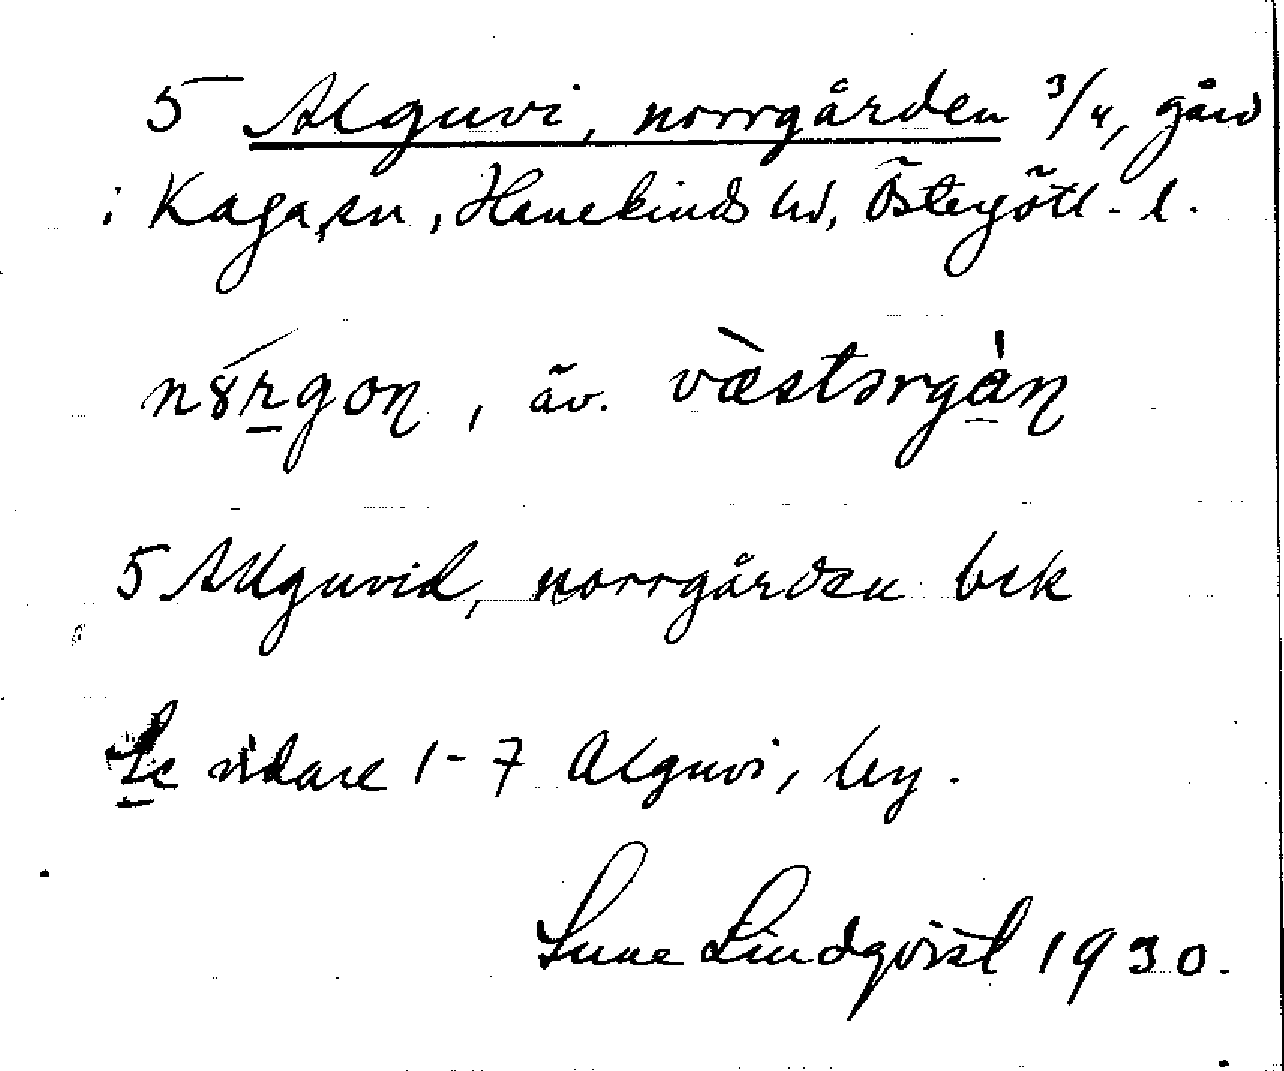 5 Alguvi, norrgården 3/4, gård
i Kaga sn, Hanekinds hd, Östergötl. l.
n8́rgon, äv. væ̀stərgàn
5 Alguvid, norrgården bek
Se vidare 1-7 Alguvi, by.
Sune Lindqvist 1930.